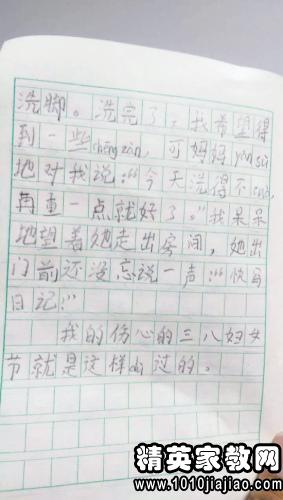 洗脚。洗完了，我希望得
到一些chēngzàn，可妈妈yánsù
地对我说：“今天洗得不cuò，
再重一点就好了。”我呆呆
地望着她走出房间，她出
门前还没忘说一声：“快写
日记！”
我的伤心的三八妇女
节就是这样dù过的。
精英家教网
www.1010jiajiao.com